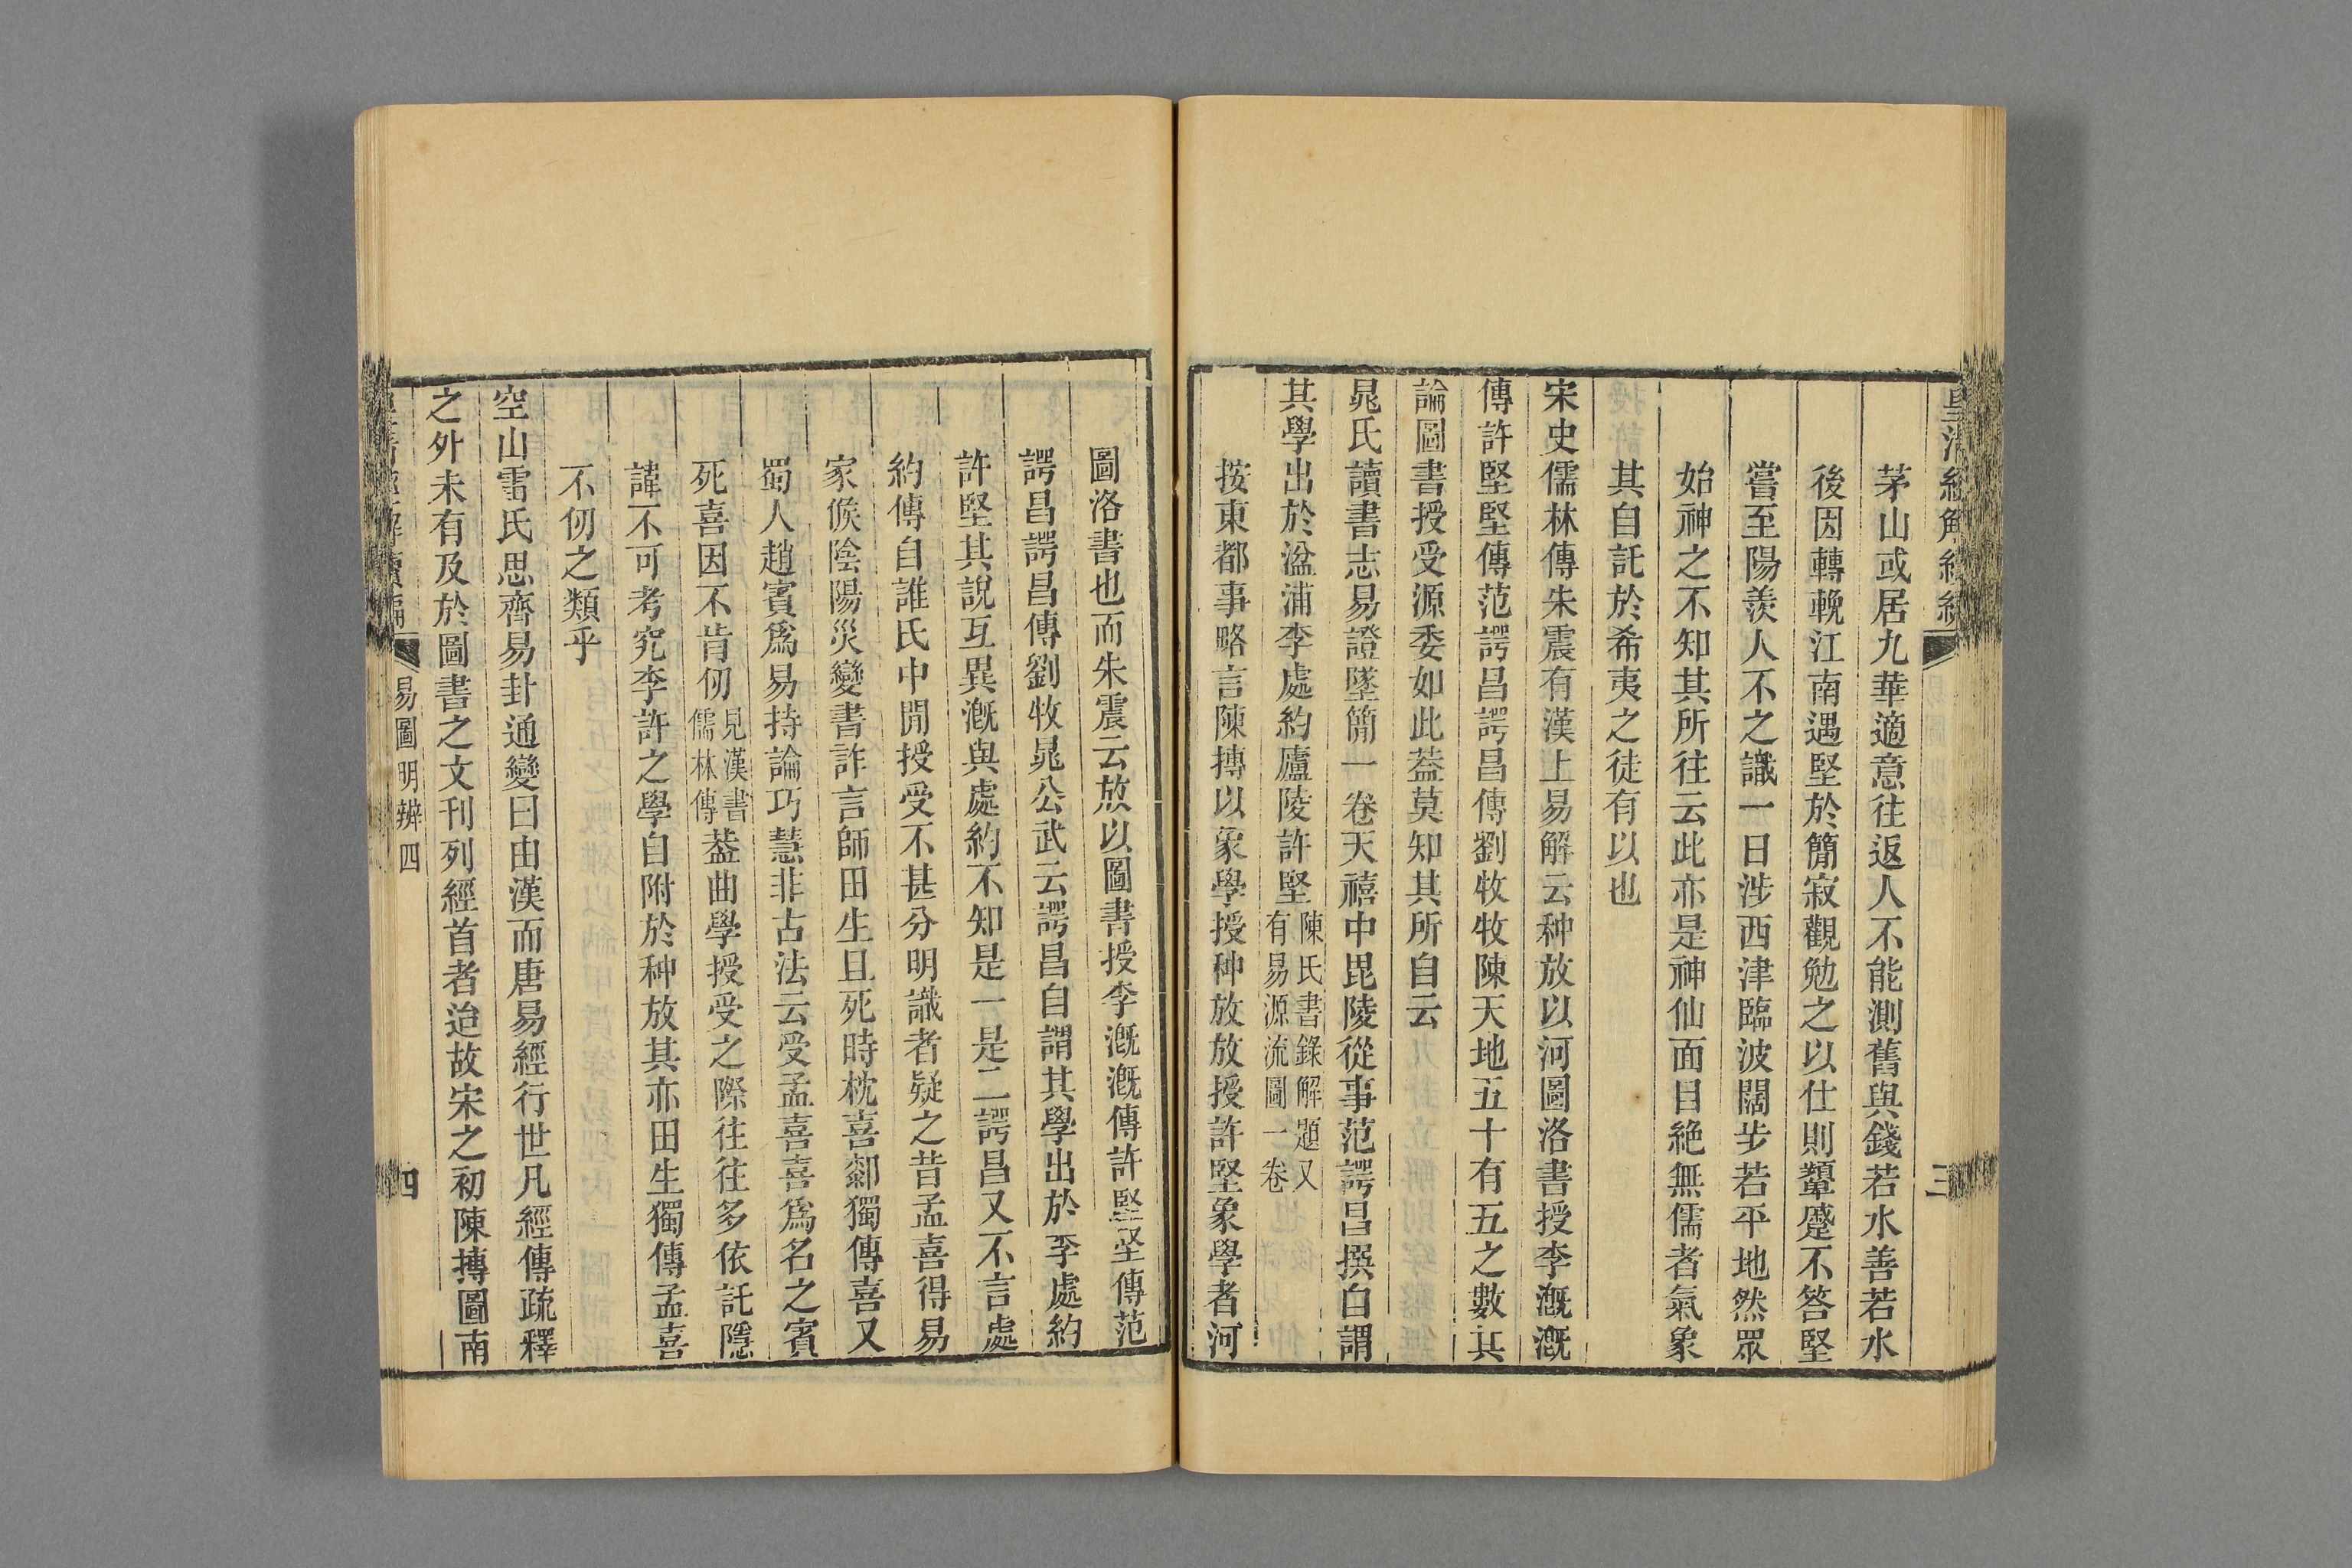 茅山或居九華適意往返人不能測舊與錢若水善若水
後因轉輓江南遇堅於簡寂觀勉之以仕則顰蹙不答堅
嘗至陽羨人不之識一日涉西津臨波闊步若平地然眾
始神之不知其所往云此亦是神仙面目絶無儒者氣象
其自託於希夷之徒有以也
宋史儒林傳朱震有漢上易解云种放以河圖洛書授李漑漑
傳許堅堅傳范諤昌諤昌傳劉牧牧陳天地五十有五之數其
論圖書授受源委如此葢莫知其所自云
晁氏讀書志易證墜簡一卷天禧中毘陵從事范諤昌撰自謂
其學出於湓浦李處約廬陵許堅陳氏書錄解題又有易源流圖一卷
按東都事略言陳摶以象學授种放放授許堅象學者河
圖洛書也而朱震云放以圖書授李漑漑傳許堅堅傳范
諤昌諤昌傳劉牧晁公武云諤昌自謂其學出於李處約
許堅其說互異漑與處約不知是一是二諤昌又不言處
約傳自誰氏中閒授受不甚分明識者疑之昔孟喜得易
家候陰陽災變書詐言師田生且死時枕喜厀獨傳喜又
蜀人趙賓爲易持論巧慧非古法云受孟喜喜爲名之賓
死喜因不肯仞見漢書儒林傳葢曲學授受之際往往多依託隱
諱不可考究李許之學自附於种放其亦田生獨傳孟喜
不仞之類乎
空山雷氏思齊易卦通變曰由漢而唐易經行世凡經傳疏釋
之外未有及於圖書之文刊列經首者迨故宋之初陳摶圖南
易圖明辨四
四